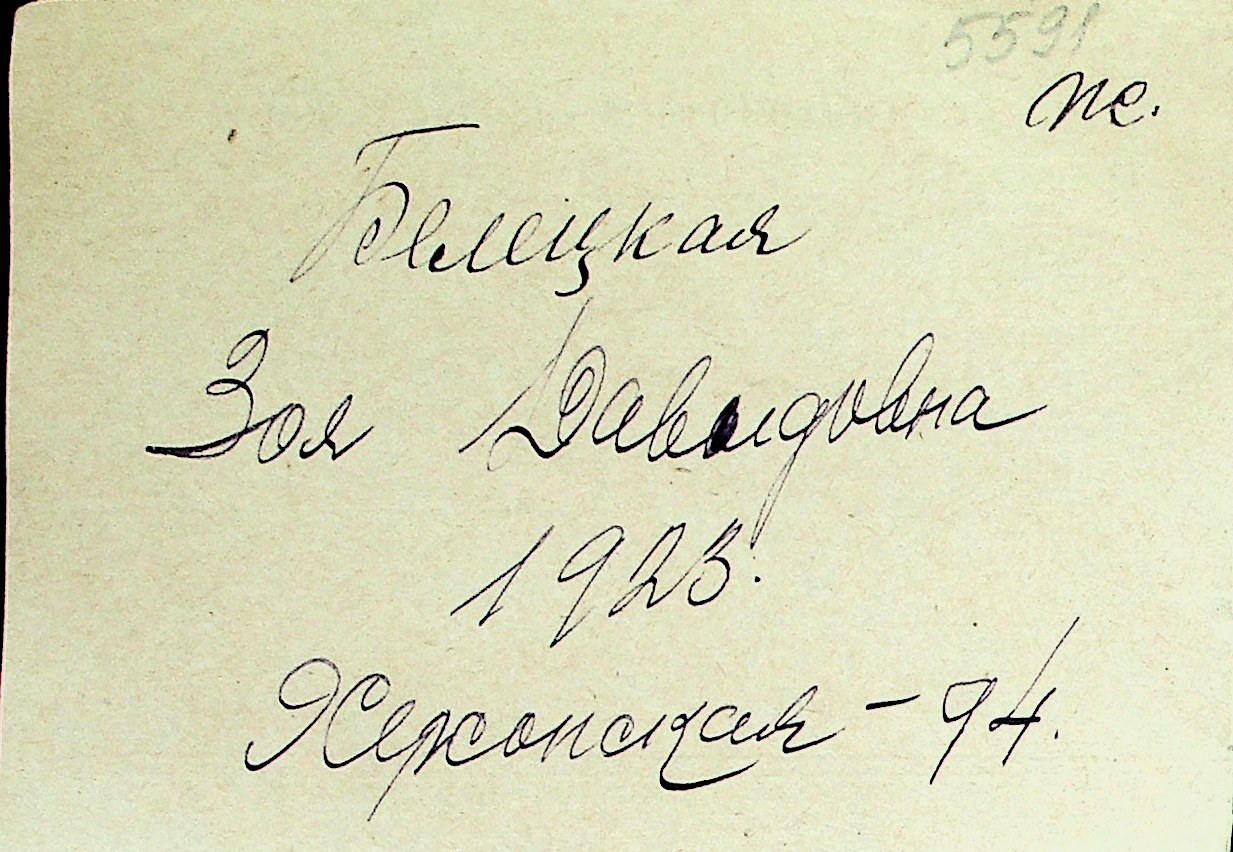 5591
пс.
Белецкая
Зоя Давыдовна
1923.
Херсонская - 94.